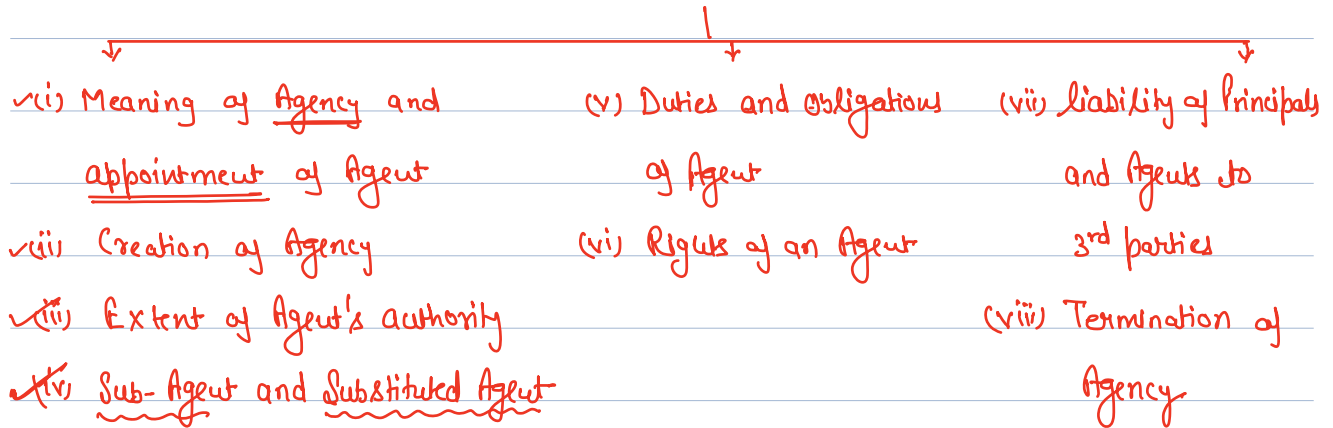 (i) Meaning of Agency and
appointment of Agent
(ii) Creation of Agency
(iii) Extent of Agent's authority
(iv) Sub-Agent and Substituted Agent
(v) Duties and Obligations
of Agent
(vi) Rights of an Agent
(vii) liability of Principals
and Agents to
3rd parties
(viii) Termination of
Agency